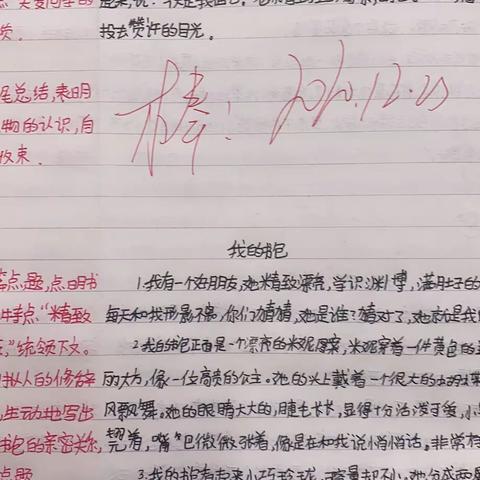 投去赞许的目光。
尾总结,表明
物的认识,自
收束.
棒! 2020.12.23
我的书包
1.我有一个好朋友,她精致漂亮,学识渊博,满肚子的
每天和我形影不离,你们猜猜,她是谁?猜对了,她就是我的
2.我的书包正面是一个漂亮的米妮图案,米妮穿着一件黄色的
丽大方,像一位高贵的公主。她的头上戴着一个很大的蝴蝶
风飘舞。她的眼睛大大的,睫毛长长,显得十分活泼可爱,小
翘着,嘴巴微微张着,像是在和我说悄悄话。非常
3.我的书包看起来小巧玲珑,容量却不小。她分成两
点题,点明书
特点"精致
"统领下文。
拟人的修辞
生动地写出
书包的亲密关系
点题